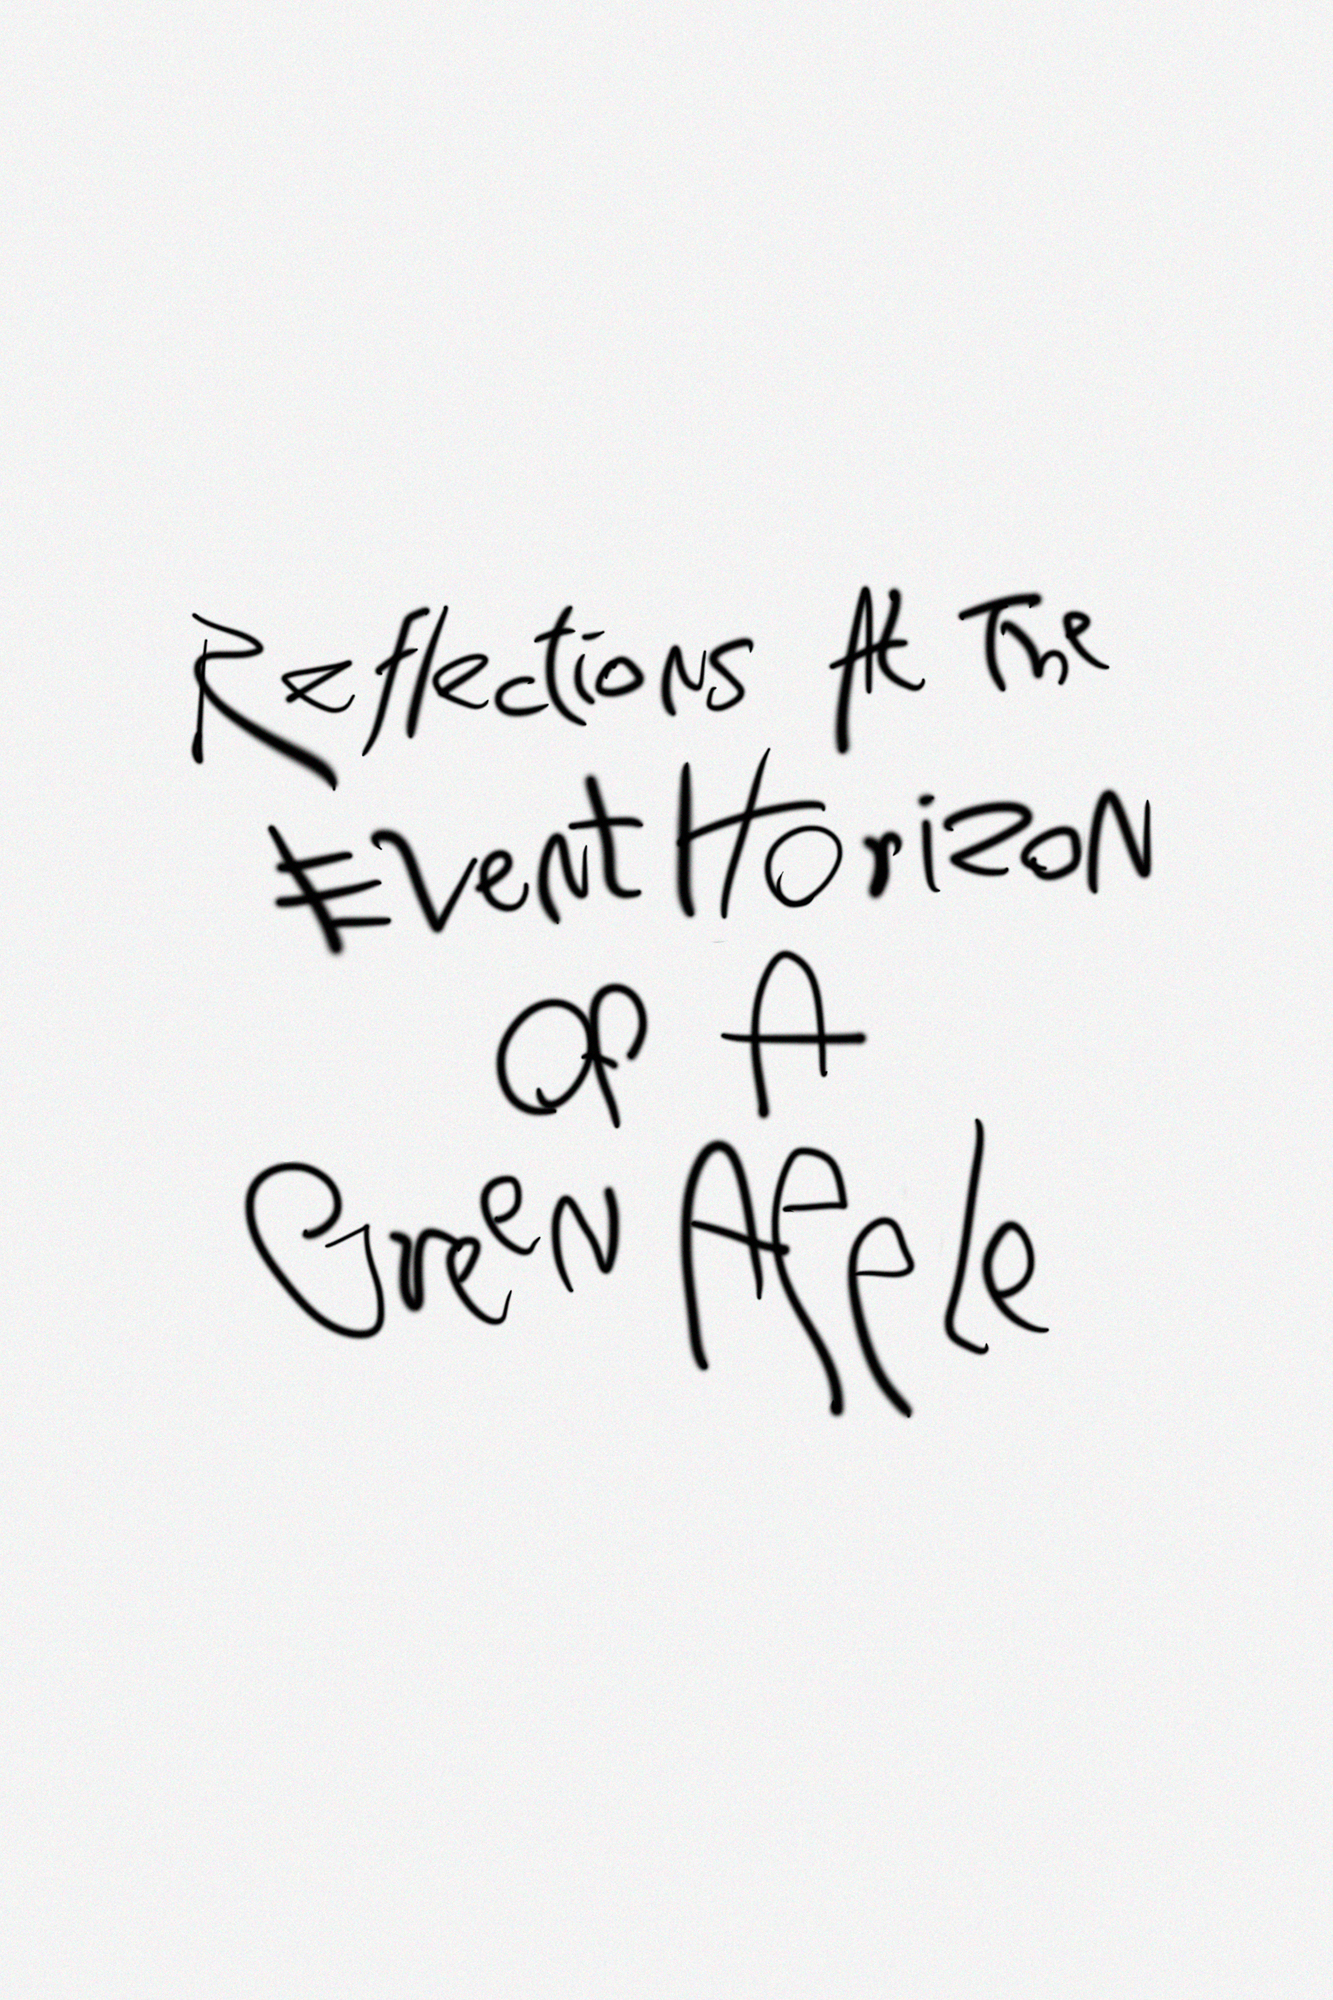 Reflections At The
Event Horizon
Of A
Green Apple